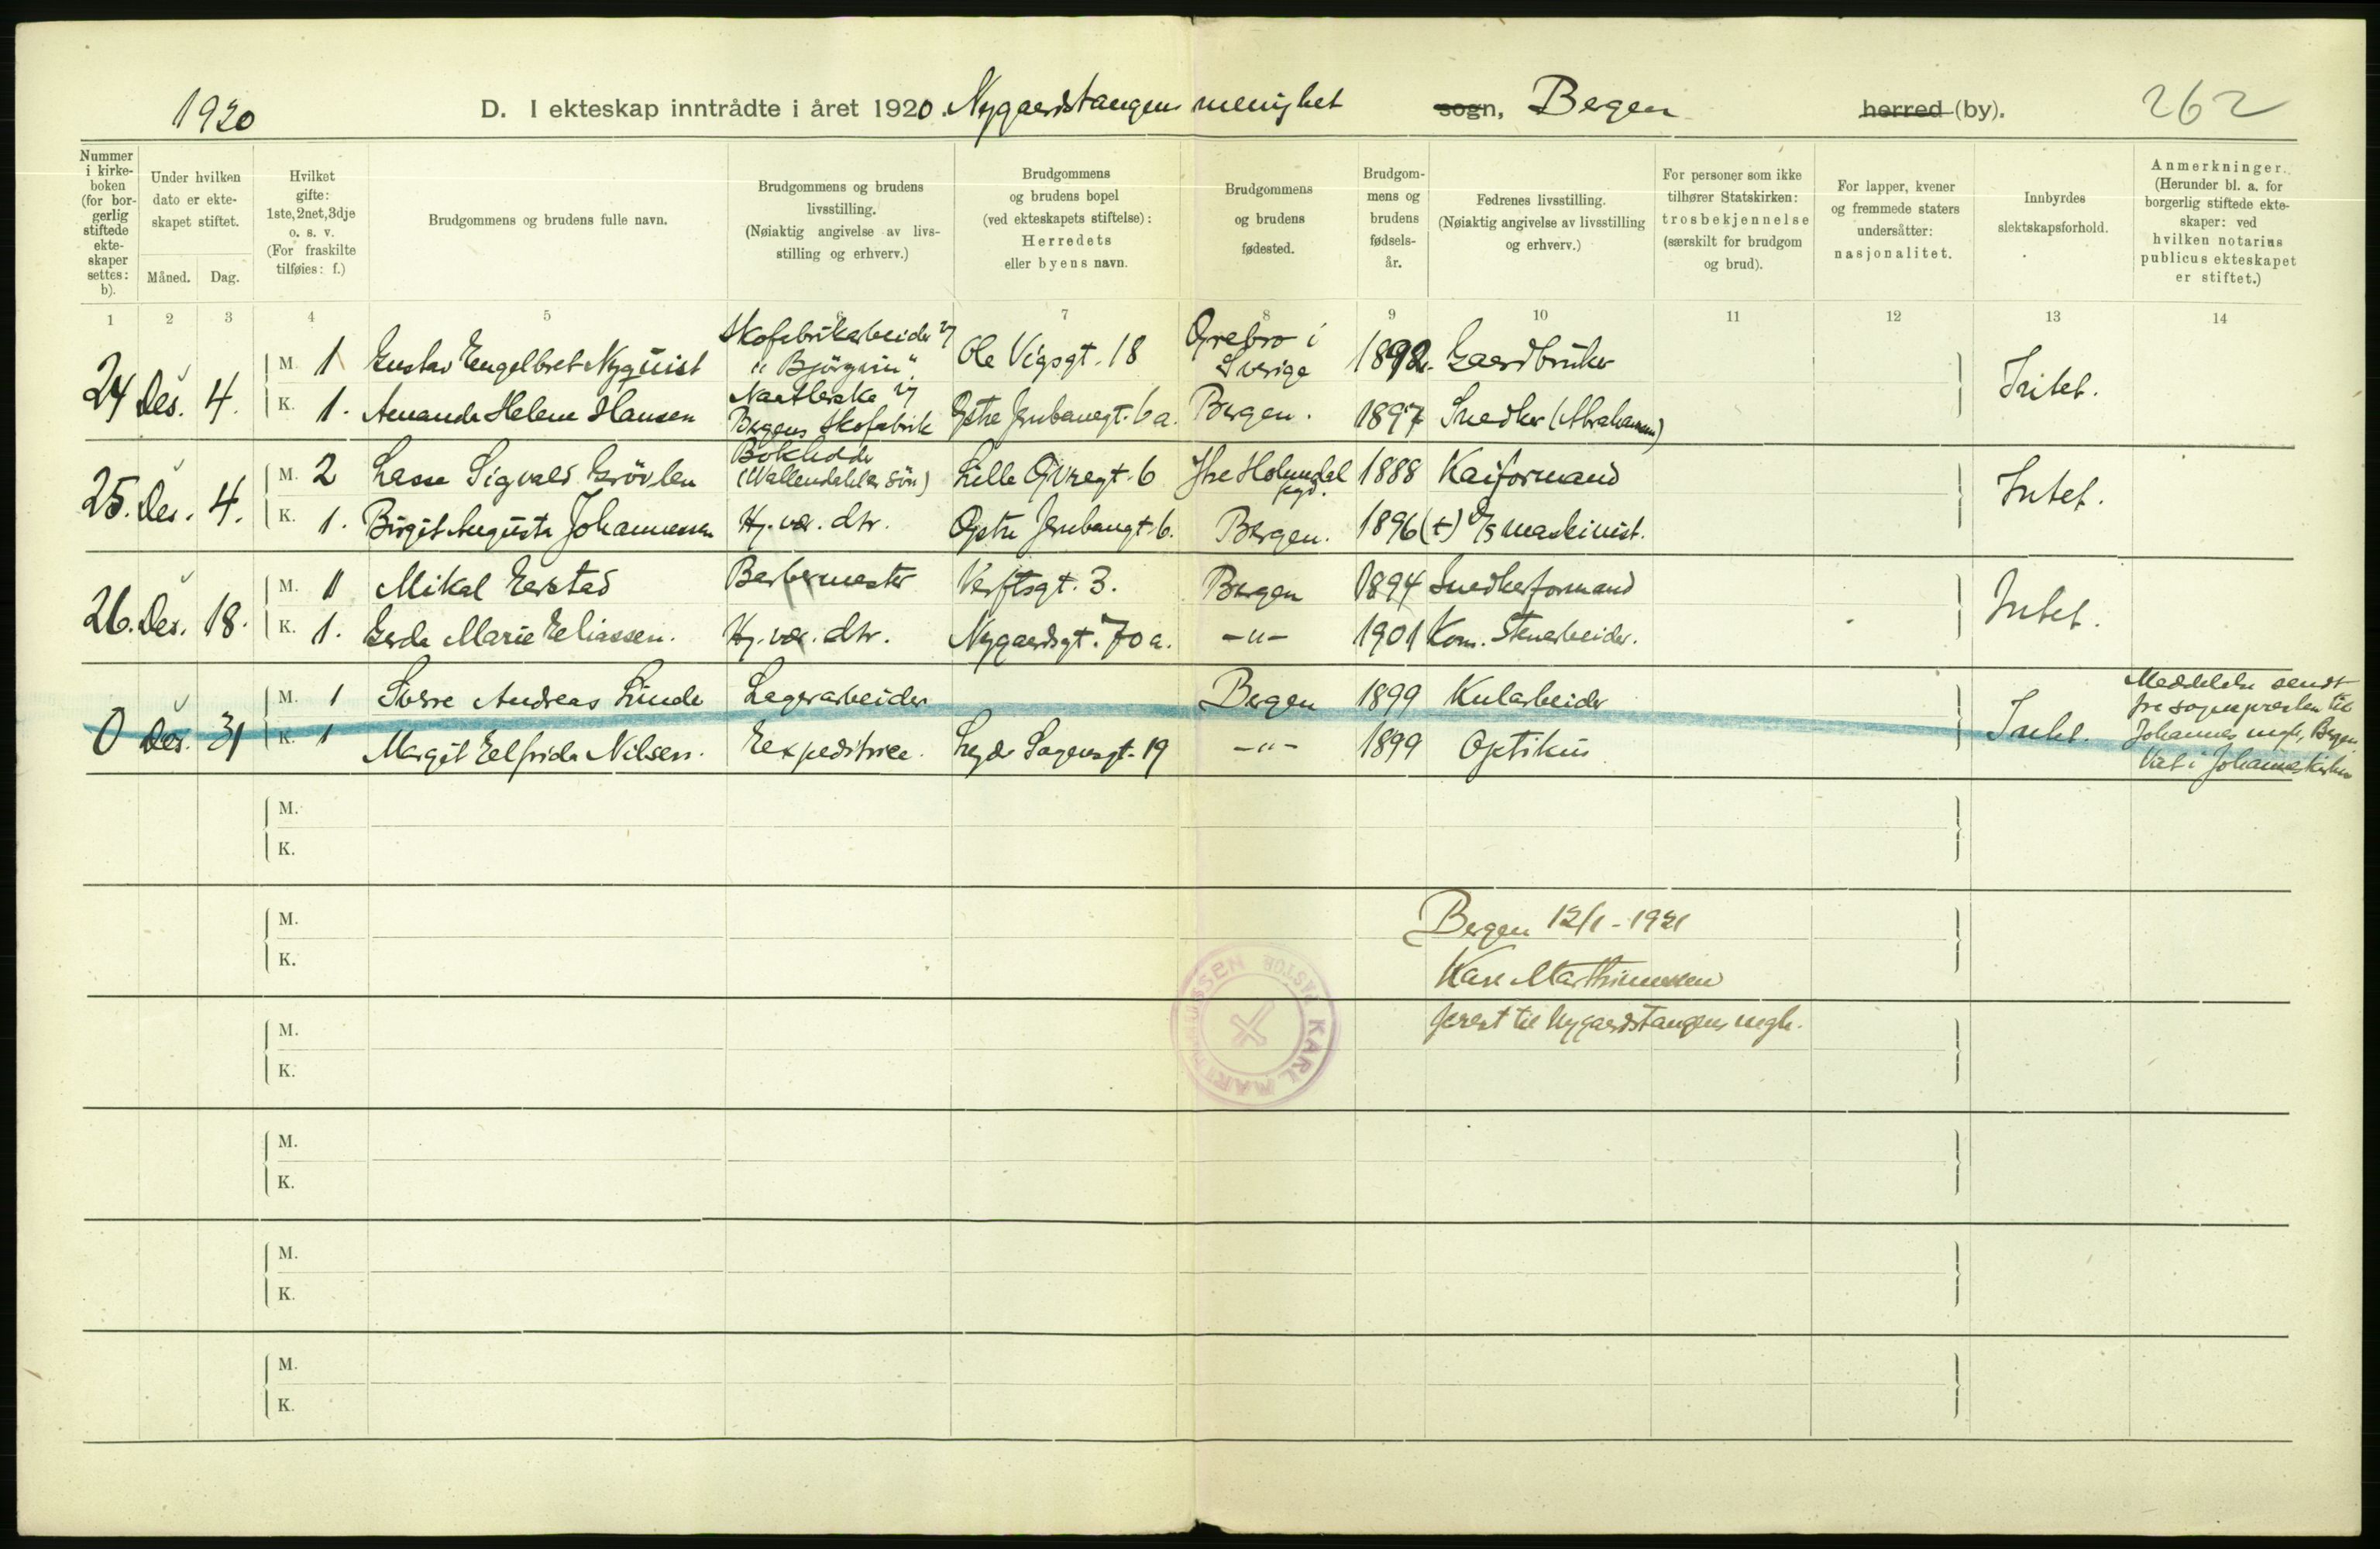 1920 D. I ekteskap inntrådte i året 1920. Nygaardstangens menighet sogn, Bergen herred (by). 262
Nummer i kirkeboken (for borgerlig stiftede ekteskaper settes: b).
Under hvilken dato er ekteskapet stiftet.
Måned. Dag.
Hvilket gifte: 1ste, 2net, 3dje o. s. v. (For fraskilte tilføies: f.)
Brudgommens og brudens fulle navn.
Brudgommens og brudens livsstilling. (Nøiaktig angivelse av livsstilling og erhverv.)
Brudgommens og brudens bopel (ved ekteskapets stiftelse): Herredets eller byens navn.
Brudgommens og brudens fødested.
Brudgommens og brudens fødselsår.
Fedrenes livsstilling. (Nøiaktig angivelse av livsstilling og erhverv.)
For personer som ikke tilhører Statskirken: trosbekjennelse (særskilt for brudgom og brud).
For lapper, kvener og fremmede staters undersåtter: nasjonalitet.
Innbyrdes slektskapsforhold.
Anmerkninger. (Herunder bl. a. for borgerlig stiftede ekteskaper: ved hvilken notarius publicus ekteskapet er stiftet.)
1 2 3 4 5 6 7 8 9 10 11 12 13 14
24 Des. 4.
M. 1 Gustav Engelbret Nyquist Skofabrikarbeider v/ "Björgvin". Ole Vigsgt. 18 Örebro i Sverige 1892. Gaardbruker
K. 1. Amanda Helene Hansen Naatlerske v/ Bergens Skofabrik Östre Jernbanegt. 6a. Bergen. 1897 Snedker (Abrahamsen)
Intet.
25. Des. 4.
M. 2 Lasse Sigvald Grövlen Bokholder (Wallendahl & sön) Lille Övregt. 6 1888 Kaiformand
K. 1. Birgit Augusta Johannessen Hj. vær. dtr. Östre Jernbanegt. 6. Bergen. 1896 (+) D/S maskinist.
Intet.
26. Des. 18.
M. 1 Mikal Eerstad Barbermester Verftsgt. 3. Bergen 1894 Snedkerformand
K. 1. Gerda Marie Eliassen. Hj. vær. dtr. Nygaardsgt. 70a. -"- 1901 Kom. Stenarbeider.
Intet.
0 Des. 31
M. 1 Sverre Andreas Linde Lagerarbeider Bergen 1899 Kularbeider
K. 1 Margit Elfrida Nilsen. Expeditrice. Sagensgt. 19 -"- 1899 Optikus
Intet.
Meddelelse sendt
fra sognepresten til
Johannes mgh, Bergen.
Viet i Johanneskirken
M.
K.
M.
K.
Bergen 12/1 - 1921
Karl Marthinussen
prest til Nygaardstangens mgh.
PASTOR KARL MARTHINUSSEN
M.
K.
M.
K.
M.
K.
M.
K.